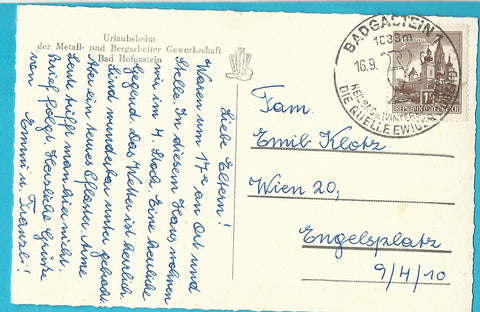 Urlaubsheim
der Metall- und Bergarbeiter Gewerkschaft
Bad Hofgastein
Liebe Eltern!
Waren um 17h an Ort und
Stelle. In diesem Haus wohnen
wir im 4. Stock. Eine herrliche
Gegend das Wetter ist herrlich.
Sind wunderbar unter gebracht.
Aber ein teures Pflaster. Arme
Leute trifft man hier nicht.
Brief folgt. Herzliche Grüsse
von Emmi u. Franzl!
BADGASTEIN 1
1083m
16.9.
DIE QUELLE EWIGER
REPUBLIK ÖSTERREICH
Fam.
Emil Klotz
Wien 20,
Engelsplatz
9/4/10